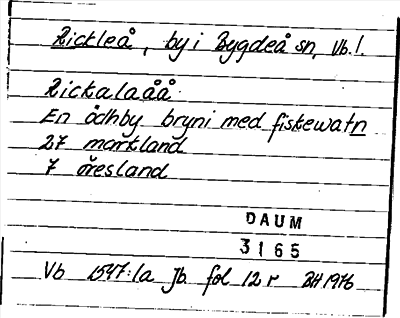 Rickleå, by i Bygdeå sn, Vb. l.
Rickalaåå
En ödhby bryni med fiskewatn
27 markland
7 öresland
DAUM
3165
Vb 1547:1a Jb fol 12 r BH 1976